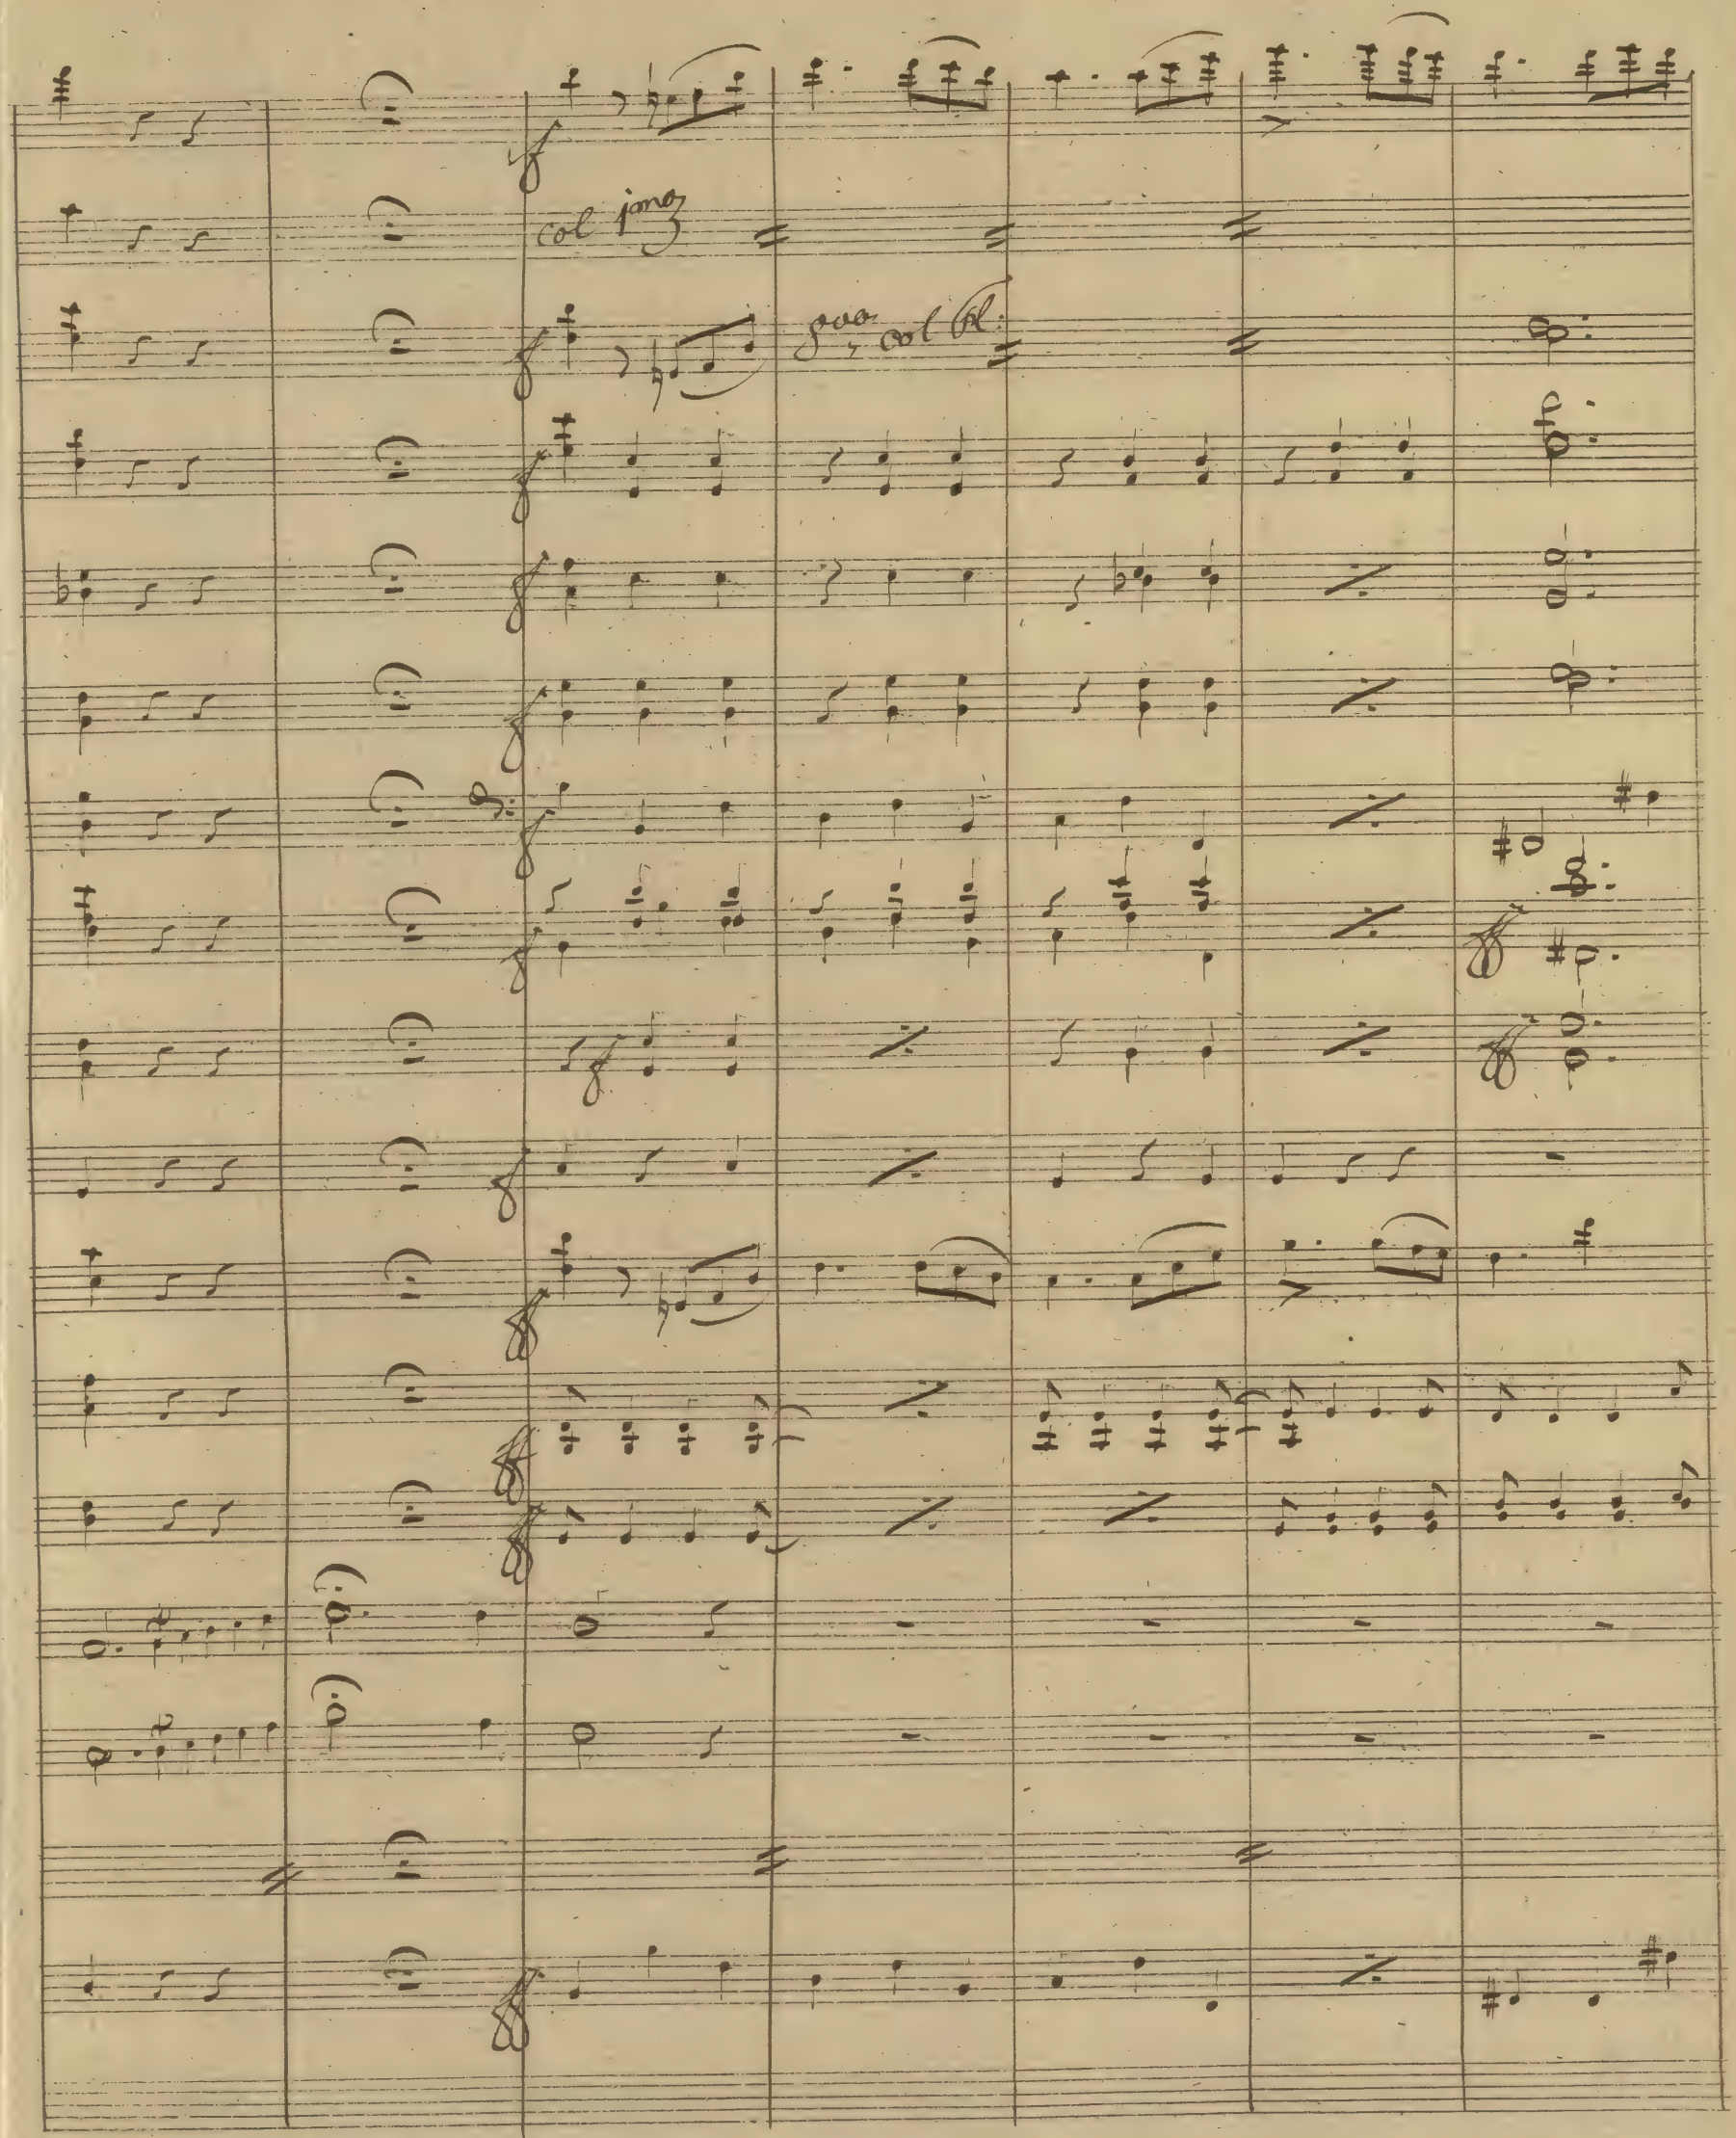 col jmo
8va col fl.